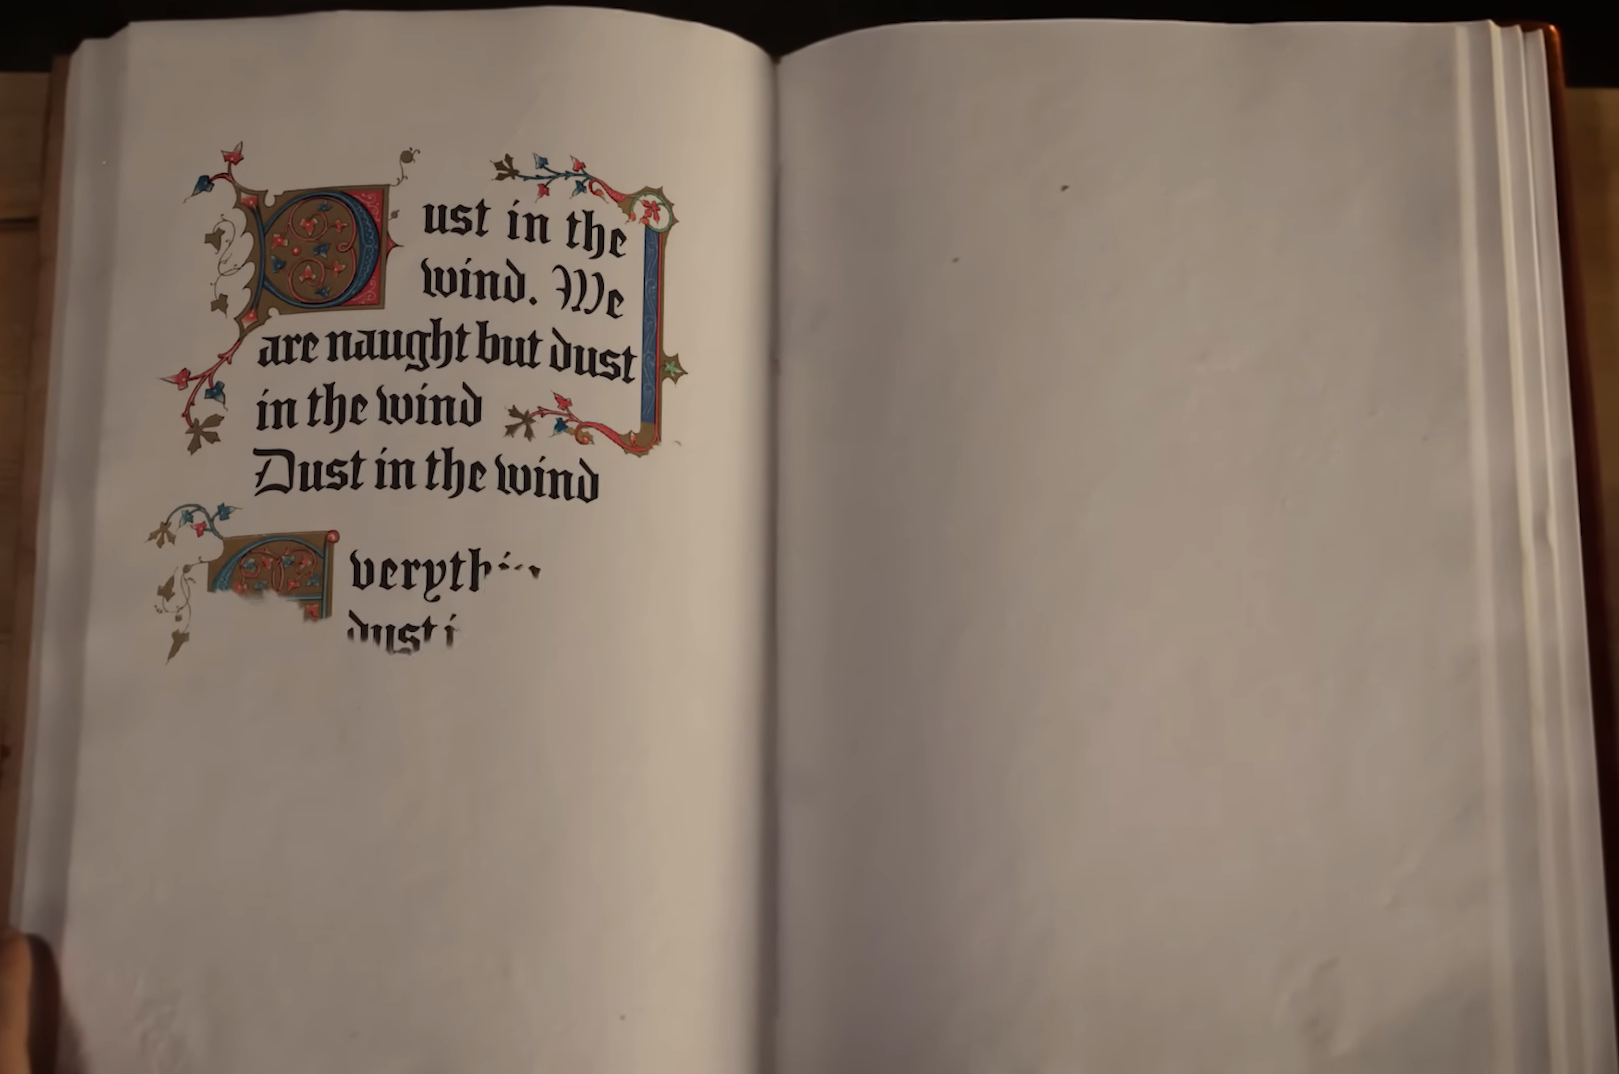 Dust in the
wind. We
are naught but dust
in the wind
Dust in the wind
Everything
dust i